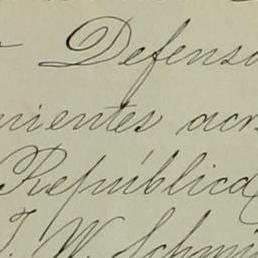 Defenso
nientes acr
República
J. W. Schmi